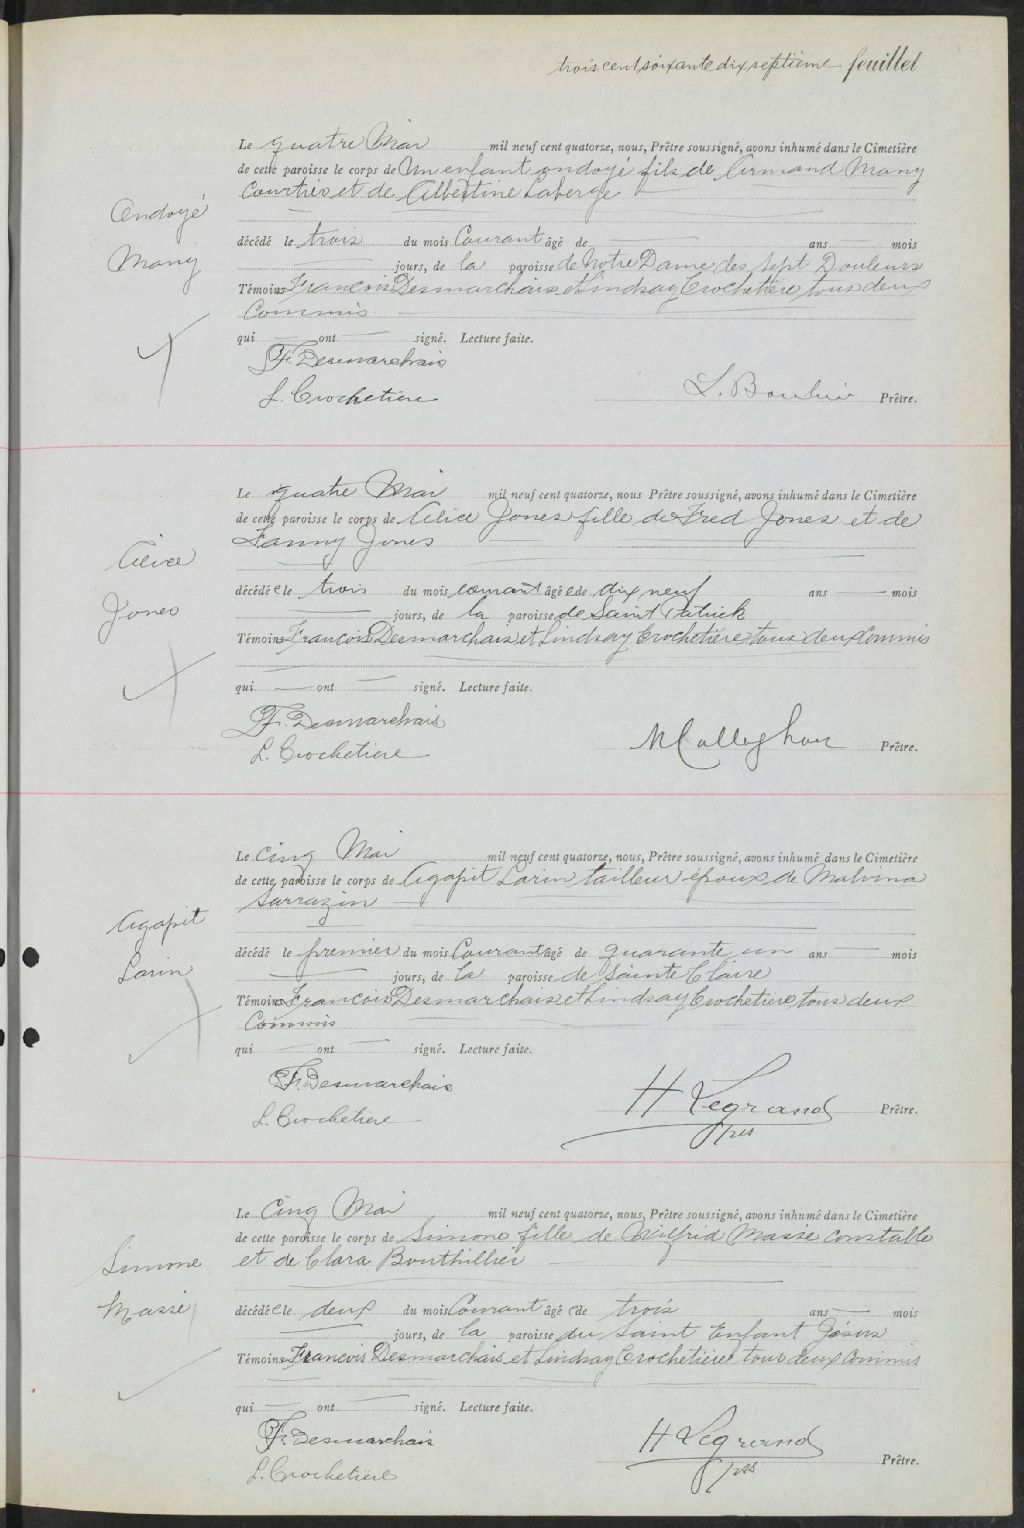 trois cent soixante dix septième feuillet
Le quatre Mai mil neuf cent quatorze, nous, Prêtre soussigné, avons inhumé dans le Cimetière
de cette paroisse le corps de Un enfant ondoyé fils de Armand Many
Courtier et de Albertine Laberge
Ondoyé
Many
décédé le trois du mois Courant âgé de ans mois
jours, de la paroisse de Notre Dame des Sept Douleurs
Témoins François Desmarchais et Lindsay Crochetière tous deux
Commis
qui ont signé. Lecture faite.
F. Desmarchais
L. Crochetiere
L. Prêtre.
Le quatre Mai mil neuf cent quatorze, nous Prêtre soussigné, avons inhumé dans le Cimetière
de cette paroisse le corps de Alice Jones fille de Fred Jones et de
Fanny Jones
Alice
Jones
décédée le trois du mois courant âgée de dix neuf ans mois
jours, de la paroisse de Saint Patrick
Témoins François Desmarchais et Lindsay Crochetière tous deux Commis
qui ont signé. Lecture faite.
F. Desmarchais
L. Crochetiere
M Callaghan Prêtre.
Le cinq Mai mil neuf cent quatorze, nous, Prêtre soussigné, avons inhumé dans le Cimetière
de cette paroisse le corps de Agapit Larin tailleur époux de Malvina
Sarrazin
Agapit
Larin
décédé le premier du mois Courant âgé de quarante un ans mois
jours, de la paroisse de Sainte Claire
Témoins François Desmarchais et Lindsay Crochetière tous deux
Commis
qui ont signé. Lecture faite.
F. Desmarchais
L. Crochetiere
H Legrand Prêtre.
ptre
Le Cinq Mai mil neuf cent quatorze, nous, Prêtre soussigné, avons inhumé dans le Cimetière
de cette paroisse le corps de Simone fille de Wilfrid Massé constable
et de Clara Bouthillier
Simone
Massé
décédée le deux du mois Courant âgée de trois ans mois
jours, de la paroisse du Saint Enfant Jésus
Témoins François Desmarchais et Lindsay Crochetière tous deux Commis
qui ont signé. Lecture faite.
F. Desmarchais
L. Crochetiere
H Legrand
ptre Prêtre.